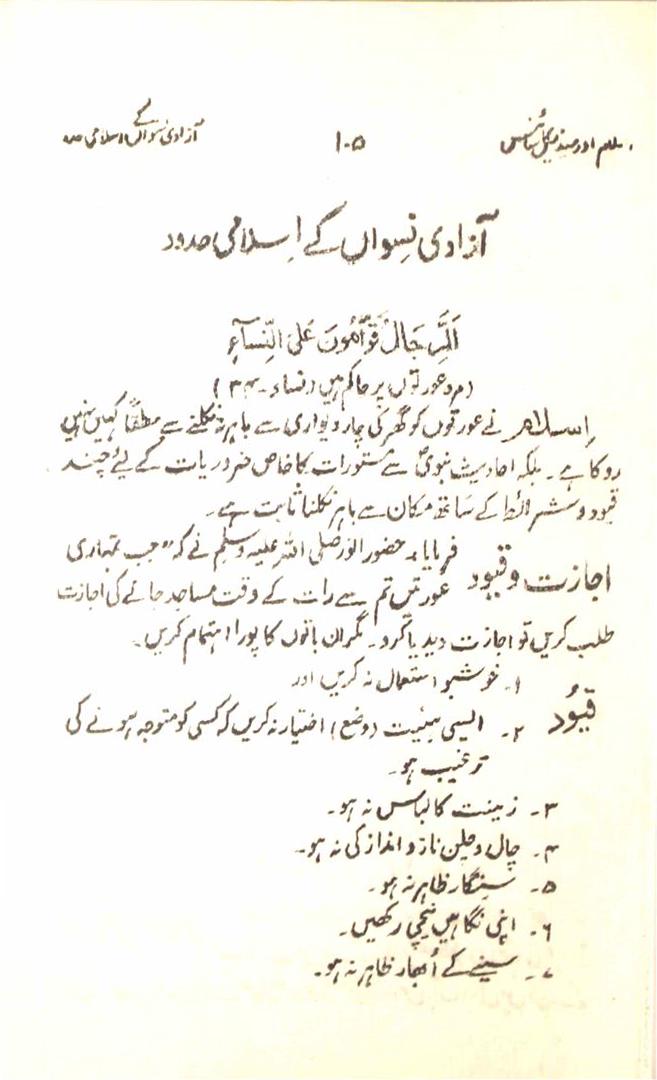 اسلام اور میڈیکل سائنس ۱۰۵ آزادی نسواں کے اسلامی حدود
آزادی نسواں کے اِسلامی حدود
اَلرِّجَالُ قَوّٰمُونَ عَلَی النِّسَآءِ
(مرد عورتوں پر حاکم ہیں (نساء ۔ ۳۴)
اِسلام نے عورتوں کو گھر کی چار دیواری سے باہر نہ نکلنے سے مطلقاً کہیں نہیں
روکا ہے ۔ بلکہ احادیث نبویؐ سے مستورات کا خاص ضروریات کے لیۓ چند
قیود و شرائط کے ساتھ مکان سے باہر نکلنا ثابت ہے ۔
اجازت و قیود فرمایا ۔ حضور انور صلی اللہ علیہ وسلم نے کہ "جب تمہاری
عورتیں تم سے رات کے وقت مساجد جانے کی اجازت
طلب کریں تو اجازت دیدیا کرو ۔ مگر ان باتوں کا پورا اہتمام کریں ۔
قیُود ۱۔ خوشبو استعمال نہ کریں اور
۲۔ ایسی ہیئیت (وضع) اختیار نہ کریں کہ کسی کو متوجہ ہونے کی
ترغیب ہو ۔
۳۔ زینت کا لباس نہ ہو ۔
۴۔ چال و چلن ناز و انداز کی نہ ہو ۔
۵۔ سنگار ظاہر نہ ہو ۔
۶۔ اپنی نگاہیں نیچی رکھیں ۔
۷۔ سینے کے اُبھار ظاہر نہ ہو ۔